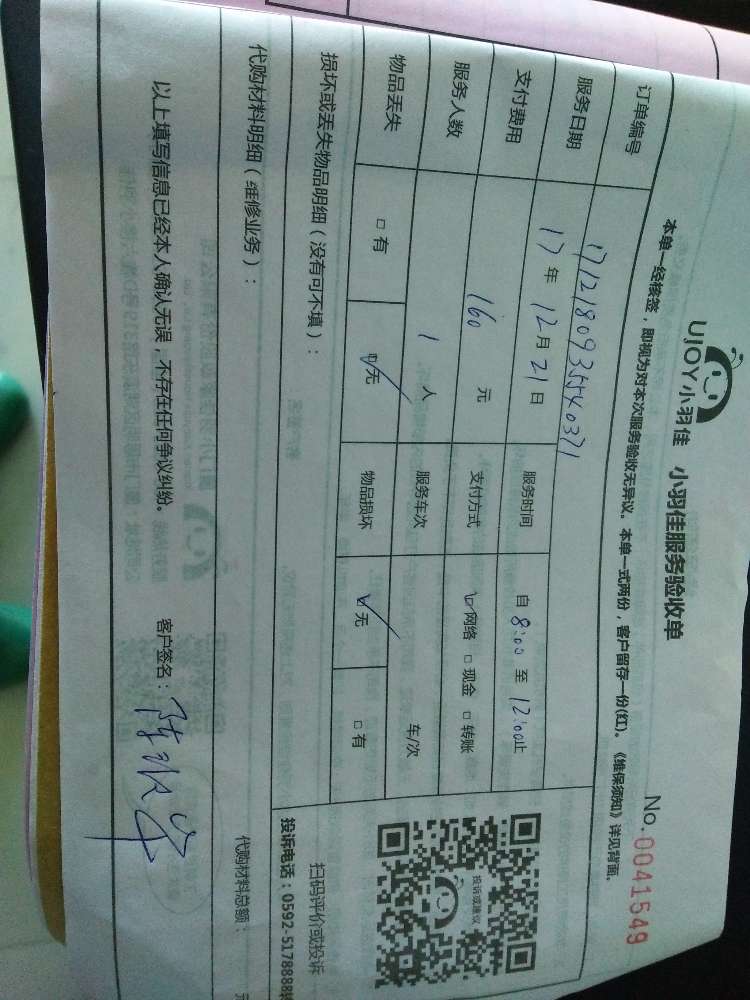 UJOY小羽佳 小羽佳服务验收单
No. 0041549
本单一经核签，即视为对本次服务验收无异议。本单一式两份，客户留存一份(红)。《维保须知》详见背面。
订单编号
服务日期 17年12月21日 服务时间 自 8:00 至 12:00止
支付费用 160 元 支付方式 网络 现金 转账
服务人数 1 人 服务车次 车/次
物品丢失 有 无 物品损坏 无 有
投诉或建议
损坏或丢失物品明细（没有可不填）：
扫码评价或投诉
投诉电话：0592-5178888
代购材料明细（维修业务）：
代购材料总额： 元
以上填写信息已经本人确认无误，不存在任何争议纠纷。 客户签名：